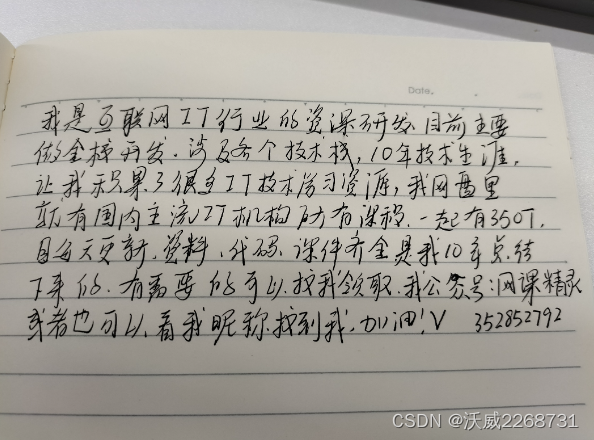 Date.
我是互联网IT行业的资深研发、目前主要
做全栈开发、涉及各个技术栈，10年技术生涯，
让我积累了很多IT技术学习资源，我网盘里
就有国内主流IT机构所有课程、一起有350T，
且每天更新、资料、代码、课件齐全是我10年总结
下来的、有需要的可以找我领取、我公众号：网课精灵
或者也可以看我昵称找到我、加油！V 352852792
CSDN @沃威2268731